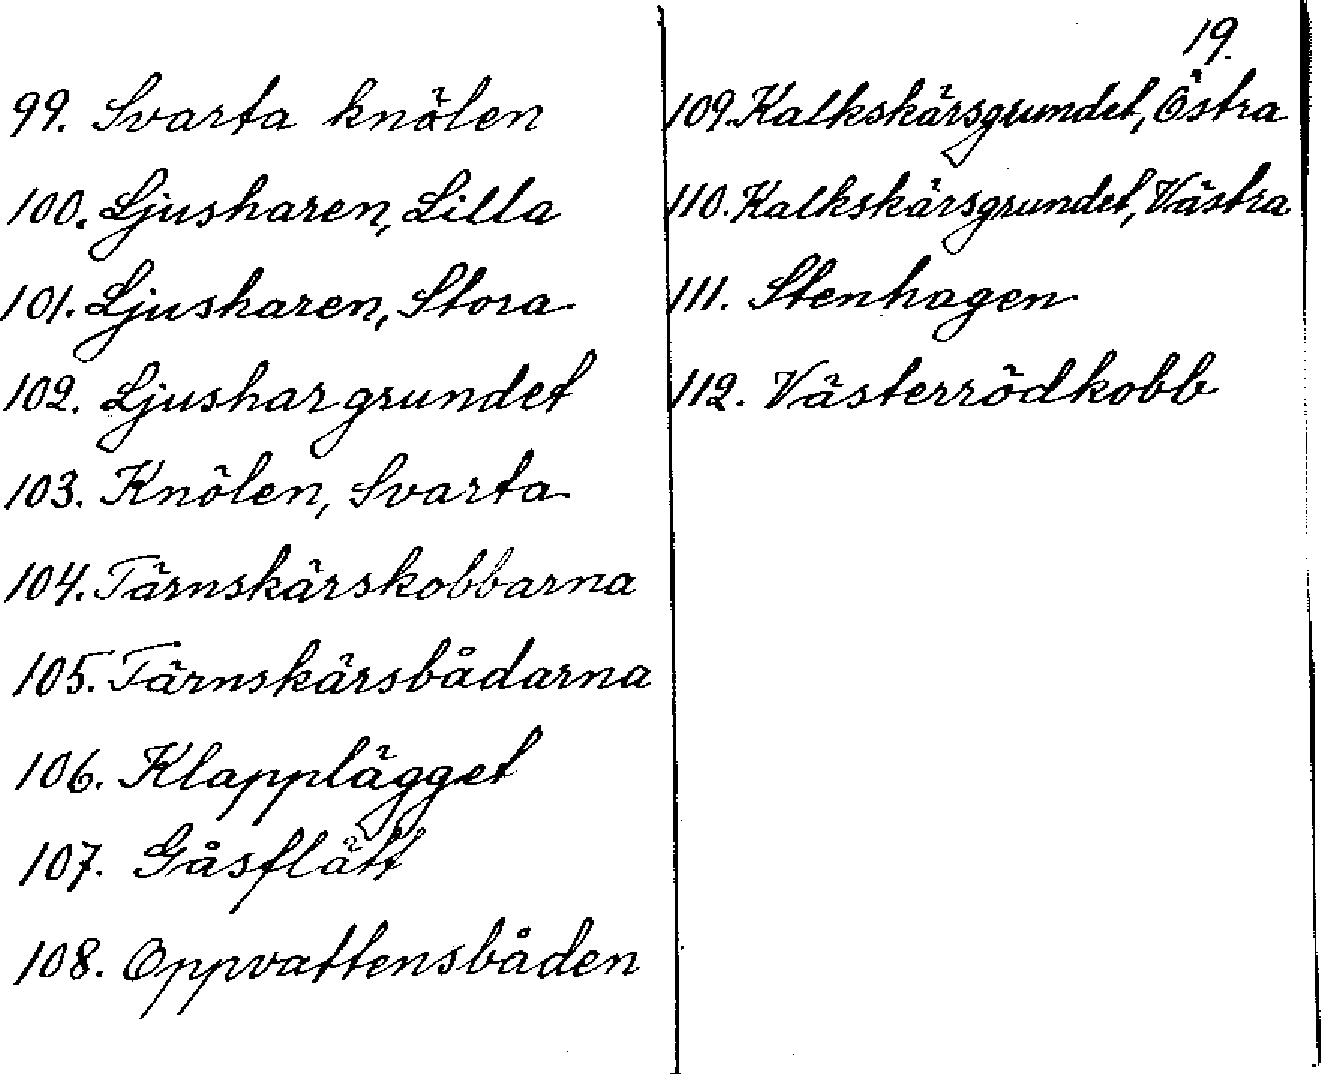 19.
99. Svarta knölen
100. Ljusharen, Lilla
101. Ljusharen, Stora
102. Ljushargrundet
103. Knölen, Svarta
104. Tärnskärskobbarna
105. Tärnskärsbådarna
106. Klapplägget
107. Gåsflätt
108. Oppvattensbåden
109. Kalkskärsgrundet, Östra
110. Kalkskärsgrundet, Västra
111. Stenhagen
112. Västerrödkobb